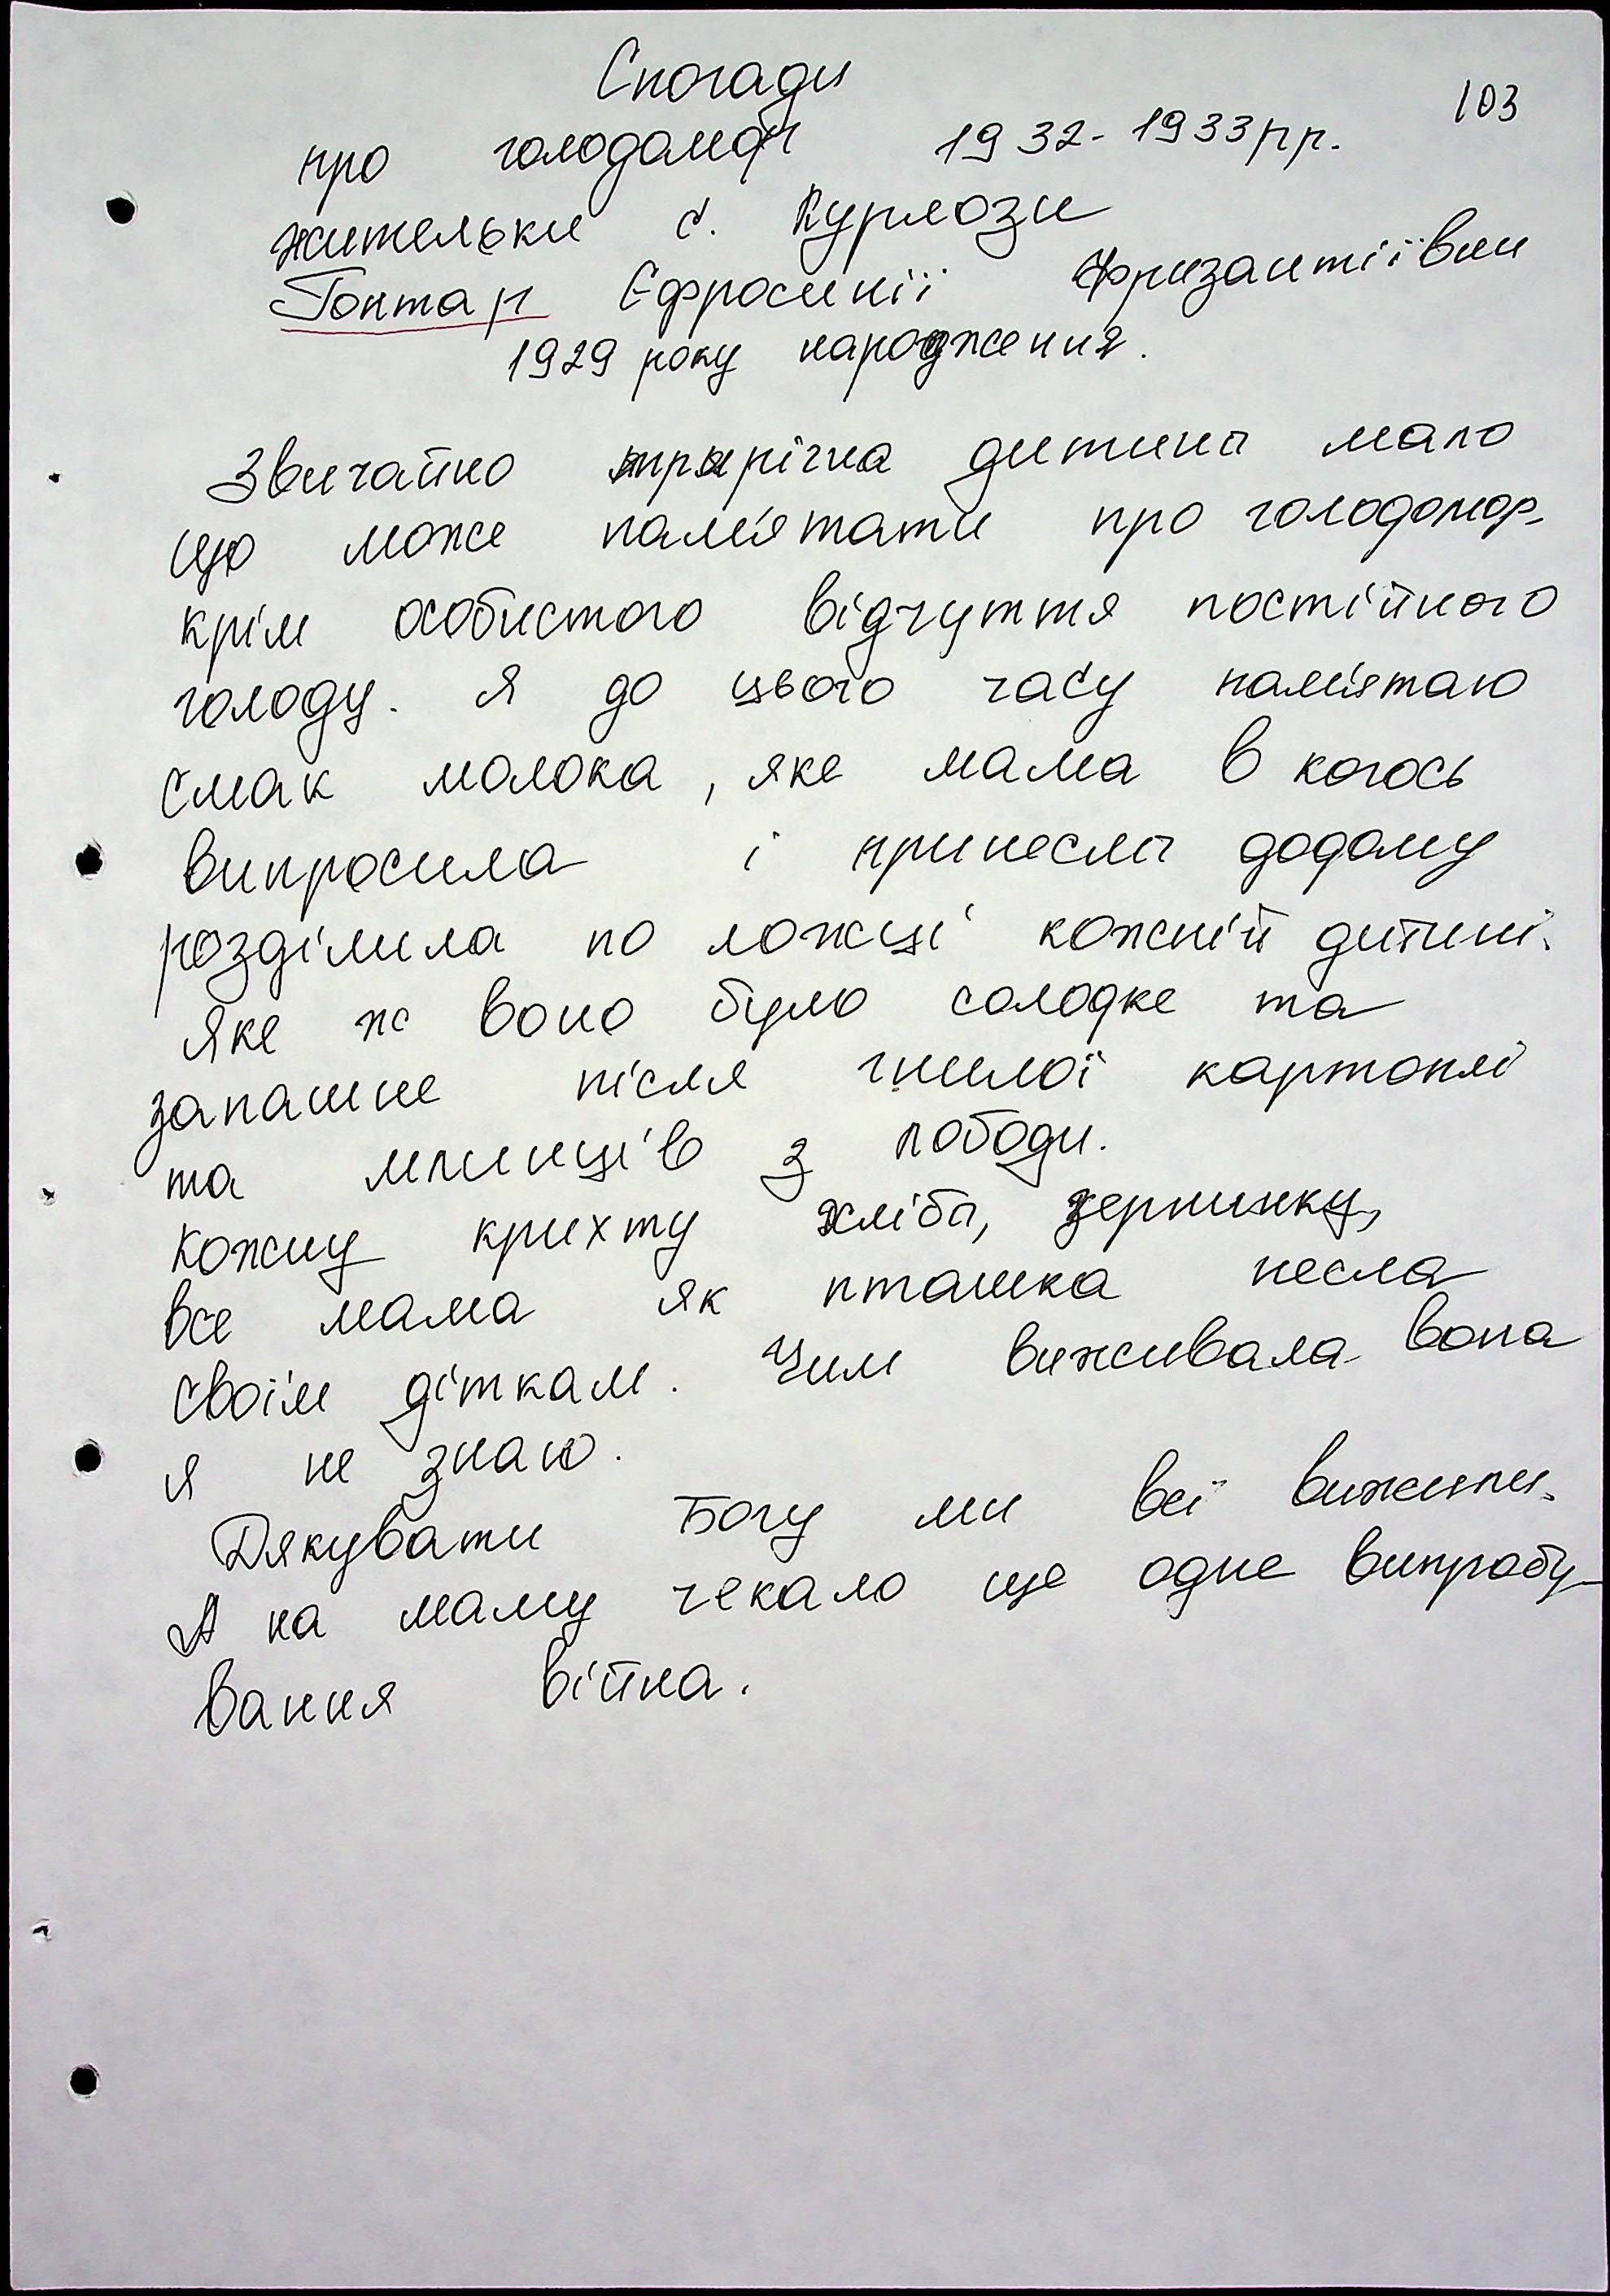 Спогади
103
про голодомор 1932-1933рр.
жительки с. Курлози
Гонтар Єфросинії Фризантіївни
1929 року народження.
Звичайно трирічна дитина мало
що може пам'ятати про голодомор.
крім особистого відчуття постійного
голоду. Я до цього часу пам'ятаю
смак молока, яке мама в когось
випросила і принесла додому
розділила по ложці кожній дитині.
Яке ж воно було солодке та
запашне після гнилої картоплі
та млинців з лободи.
Кожну крихту хліба, зернинку,
все мама як пташка несла
своїм діткам. Чим виживала вона
я не знаю.
Дякувати Богу ми всі вижили.
А на маму чекало ще одне випробу-
вання війна.